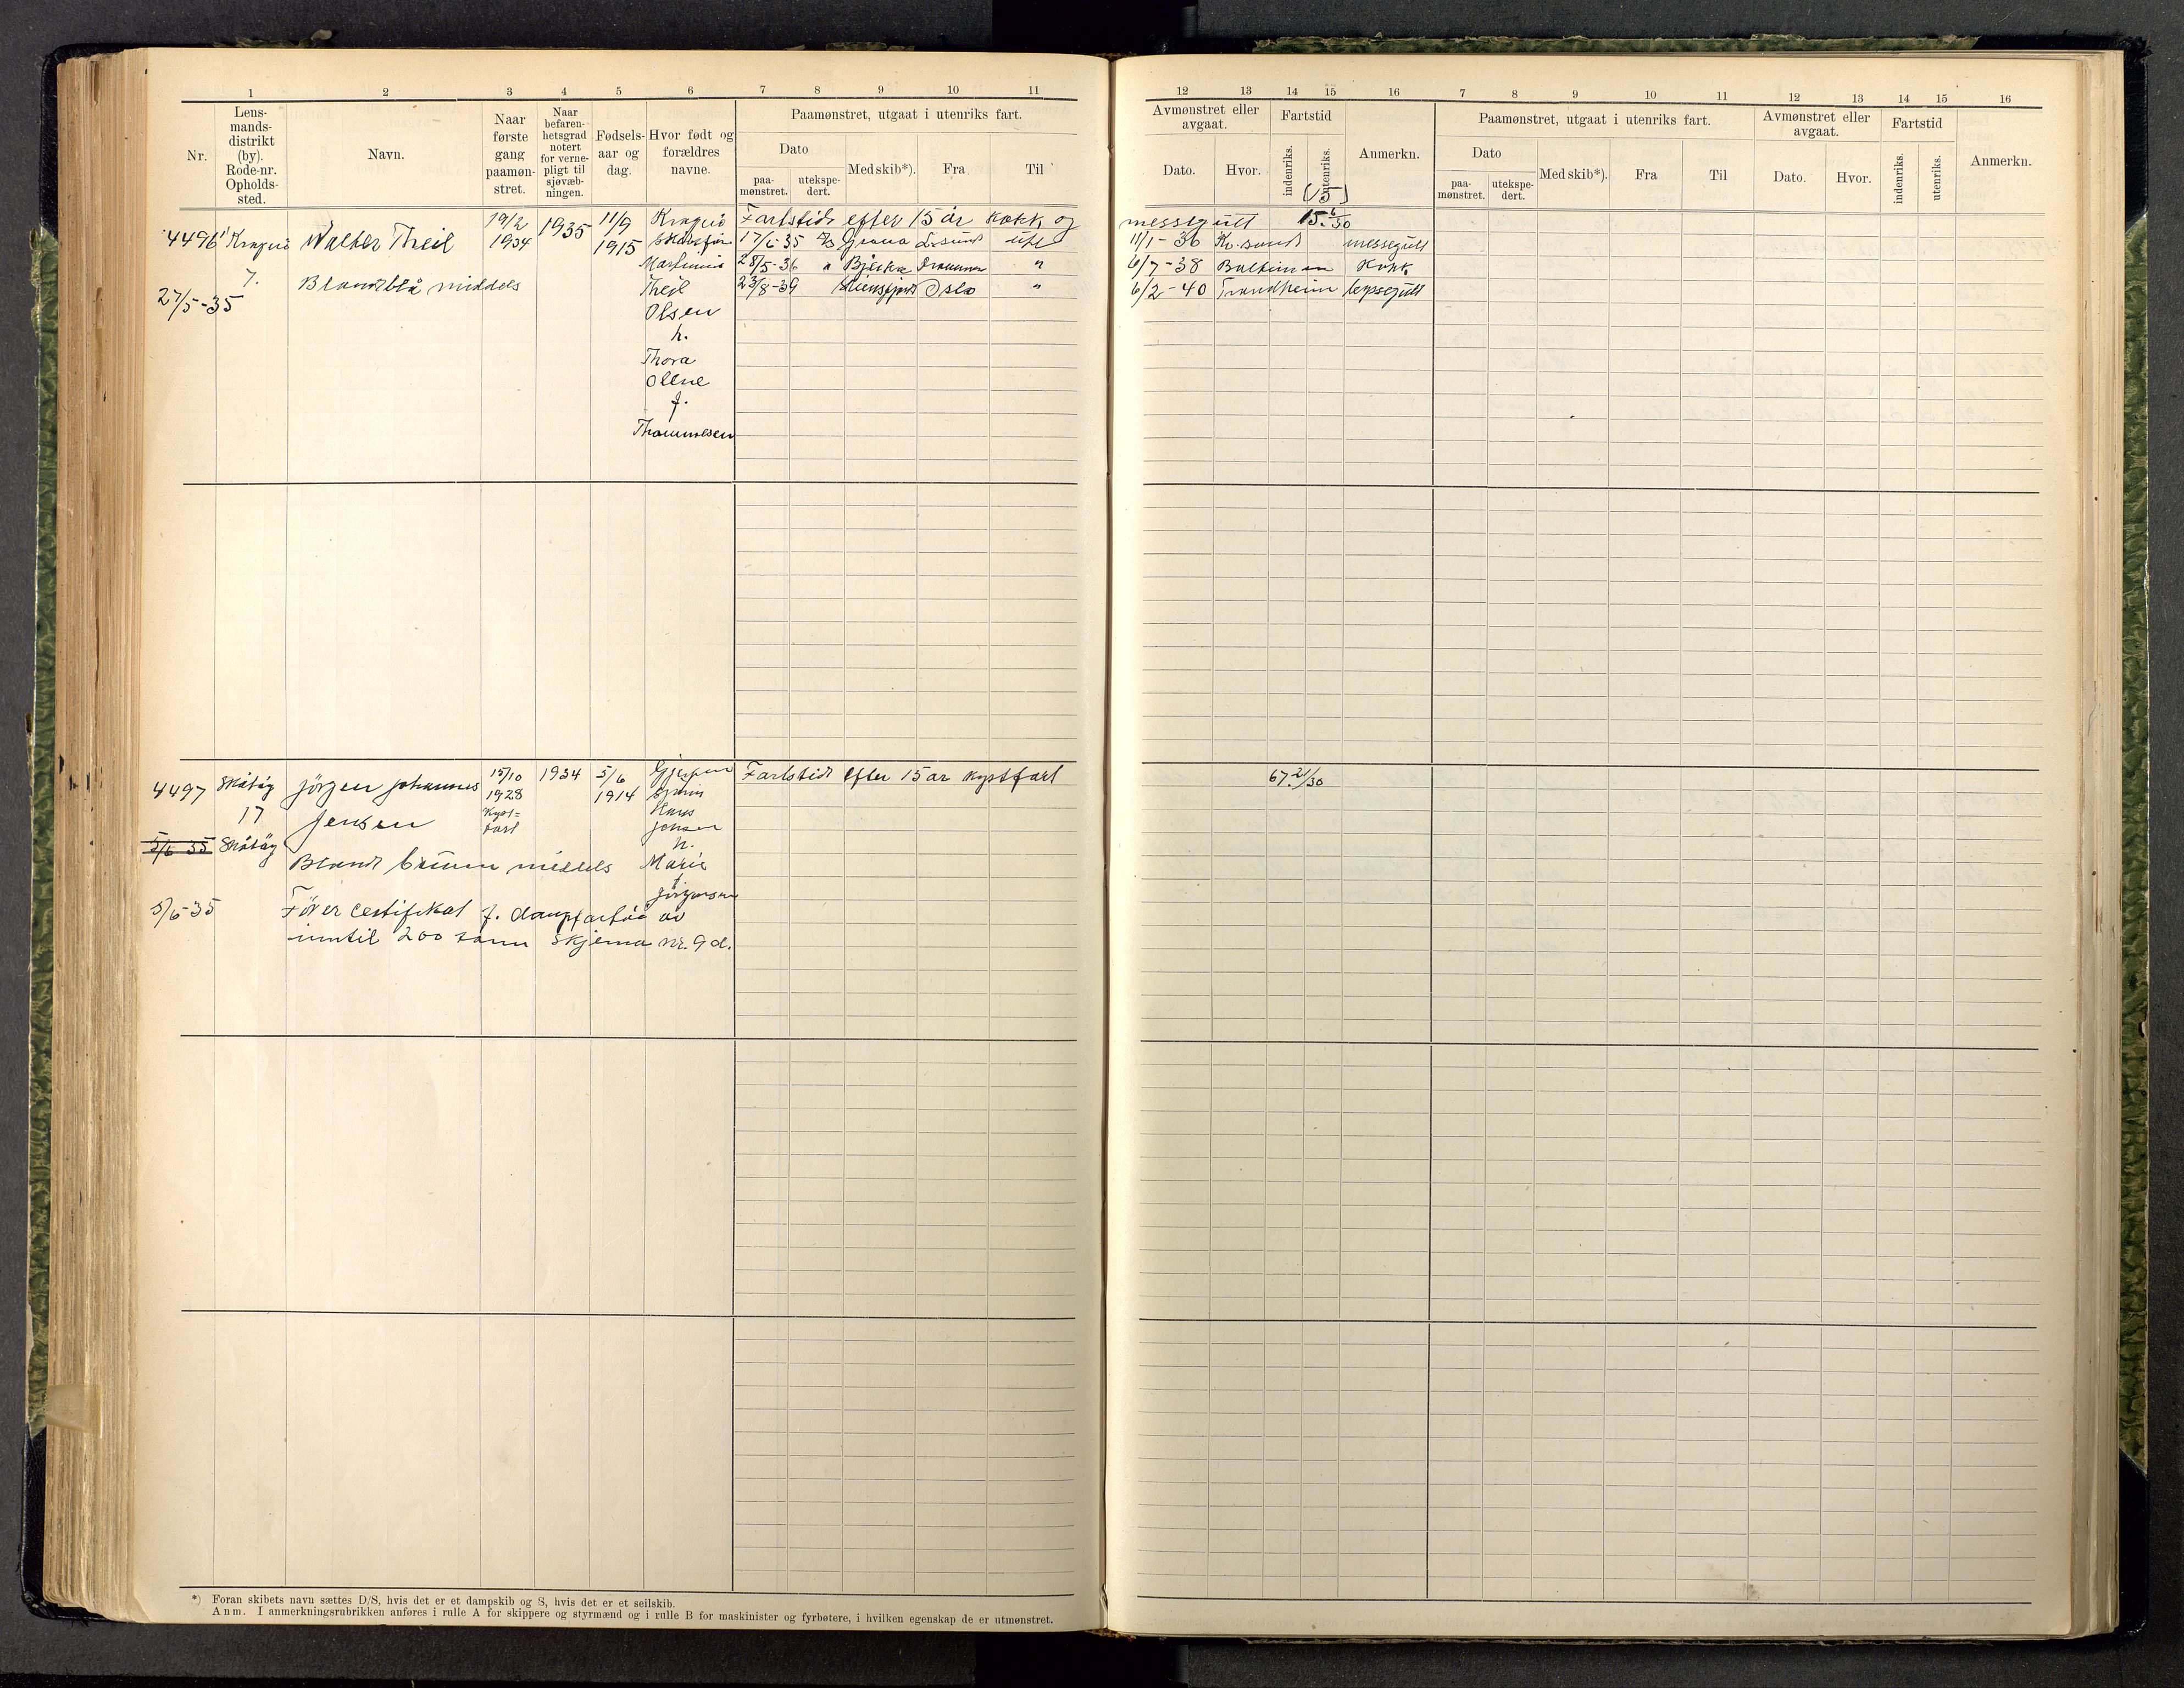 1 2 3 4 5 6 7 8 9 10 11
Nr.
Lens-
mands-
distrikt
(by).
Rode-nr.
Opholds-
sted.
Navn.
Naar
første
gang
paamøn-
stret.
Naar
befaren-
hetsgrad
notert
for verne-
pligt til
sjøvæb-
ningen.
Fødsels-
aar og
dag.
Hvor født og
forældres
navne.
Paamønstret, utgaat i utenriks fart.
Dato
paa-
mønstret.
utekspe-
dert.
Med skib*).
Fra
Til
4496
Kragerø
7.
27/5-35
Walter Theil
Blond blå middels
19/2
1934
1935
11/9
1915
Kragerø
Martinius
Theil
Olsen
h.
Thora
Oline
f.
Thommesen
Fartstid efter 15 år kokk og
17/6-35 D/S Grana L.sund utl
28/5-36 " Drammen "
23/8-39 Oslo "
4497
Skåtøy
17
5/6 35 Skåtøy
5/6-35
Jörgen Johannes
Jensen
Blond brun middels
15/10
1928
Kyst-
fart
1934
5/6
1914
Gjerpen
Hans
Jensen
h.
Marie
f.
Jörgensen
Fartstid efter 15 år kystfart
Förer certifikat f. dampfartöi av
inntil 200 tonn skjema nr. 9 d.
*) Foran skibets navn sættes D/S, hvis det er et dampskib og S, hvis det er et seilskib.
Anm. I anmerkningsrubrikken anføres i rulle A for skippere og styrmænd og i rulle B for maskinister og fyrbøtere, i hvilken egenskap de er utmønstret.
12 13 14 15 16 7 8 9 10 11 12 13 14 15 16
Avmønstret eller
avgaat.
Dato.
Hvor.
Fartstid
indenriks.
utenriks.
(15)
Anmerkn.
Paamønstret, utgaat i utenriks fart.
Dato
paa-
mønstret.
utekspe-
dert.
Med skib*).
Fra
Til
Avmønstret eller
avgaat.
Dato.
Hvor.
Fartstid
indenriks.
utenriks.
Anmerkn.
messegutt 15. 6/30
11/1-36 Kr. sund messegutt
6/7-38 Baltimore Kokk
6/2-40 Trondheim byssegutt
67. 21/30